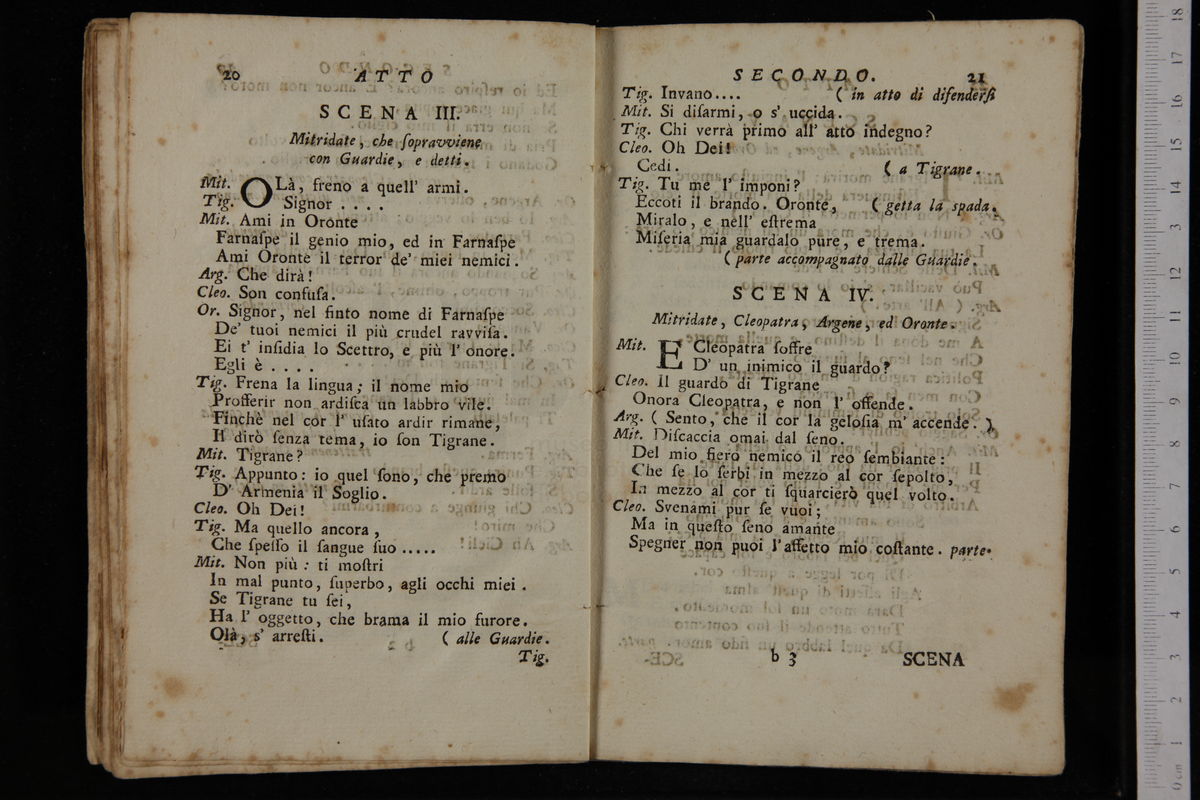 20 ATTO
SCENA III.
Mitridate, che ſopravviene
con Guardie, e detti.
Mit. OLà, freno a quell' armi.
Tig. Signor . . . .
Mit. Ami in Oronte
Farnaſpe il genio mio, ed in Farnaſpe
Ami Oronte il terror de' miei nemici.
Arg. Che dirà!
Cleo. Son confuſa.
Or. Signor, nel finto nome di Farnaſpe
De' tuoi nemici il più crudel ravviſa.
Ei t' inſidia lo Scettro, e più l' onore.
Egli è . . . .
Tig. Frena la lingua; il nome mio
Profferir non ardiſca un labbro vile.
Finchè nel cor l' uſato ardir rimane,
Il dirò ſenza tema, io ſon Tigrane.
Mit. Tigrane?
Tig. Appunto: io quel ſono, che premo
D' Armenia il Soglio.
Cleo. Oh Dei!
Tig. Ma quello ancora,
Che ſpeſſo il ſangue ſuo .....
Mit. Non più: ti moſtri
In mal punto, ſuperbo, agli occhi miei.
Se Tigrane tu ſei,
Ha l' oggetto, che brama il mio furore.
Olà, s' arreſti. ( alle Guardie.
Tig.
SECONDO. 21
Tig. Invano.... ( in atto di difenderſi
Mit. Si diſarmi, o s' uccida.
Tig. Chi verrà primo all' atto indegno?
Cleo. Oh Dei!
Cedi. ( a Tigrane.
Tig. Tu me l' imponi?
Eccoti il brando. Oronte, ( getta la spada.
Miralo, e nell' eſtrema
Miſeria mia guardalo pure, e trema.
( parte accompagnato dalle Guardie.
SCENA IV.
Mitridate, Cleopatra, Argene, ed Oronte.
Mit. E Cleopatra ſoffre
D' un inimico il guardo?
Cleo. Il guardo di Tigrane
Onora Cleopatra, e non l' offende.
Arg. ( Sento, che il cor la geloſia m' accende. )
Mit. Diſcaccia omai dal ſeno.
Del mio fiero nemico il reo ſembiante:
Che ſe lo ſerbi in mezzo al cor ſepolto,
In mezzo al cor ti ſquarcierò quel volto.
Cleo. Svenami pur ſe vuoi;
Ma in queſto ſeno amante
Spegner non puoi l'affetto mio coſtante. parte.
b 3 SCENA